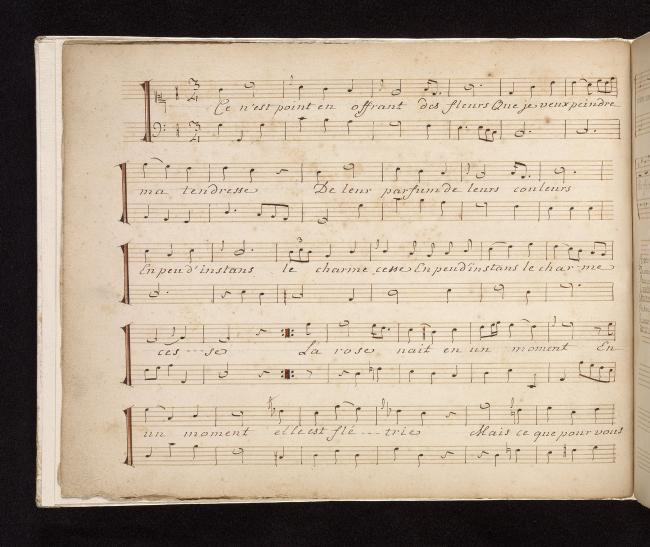 Ce n'est point en offrant des fleurs Que je veux peindre
ma tendresse De leur parfum de leurs couleurs
En peu d'instans le charme cesse En peu d'instans le char-me
ces---se La rose nait en un moment En
un moment elle est flé---trie Mais ce que pour vous